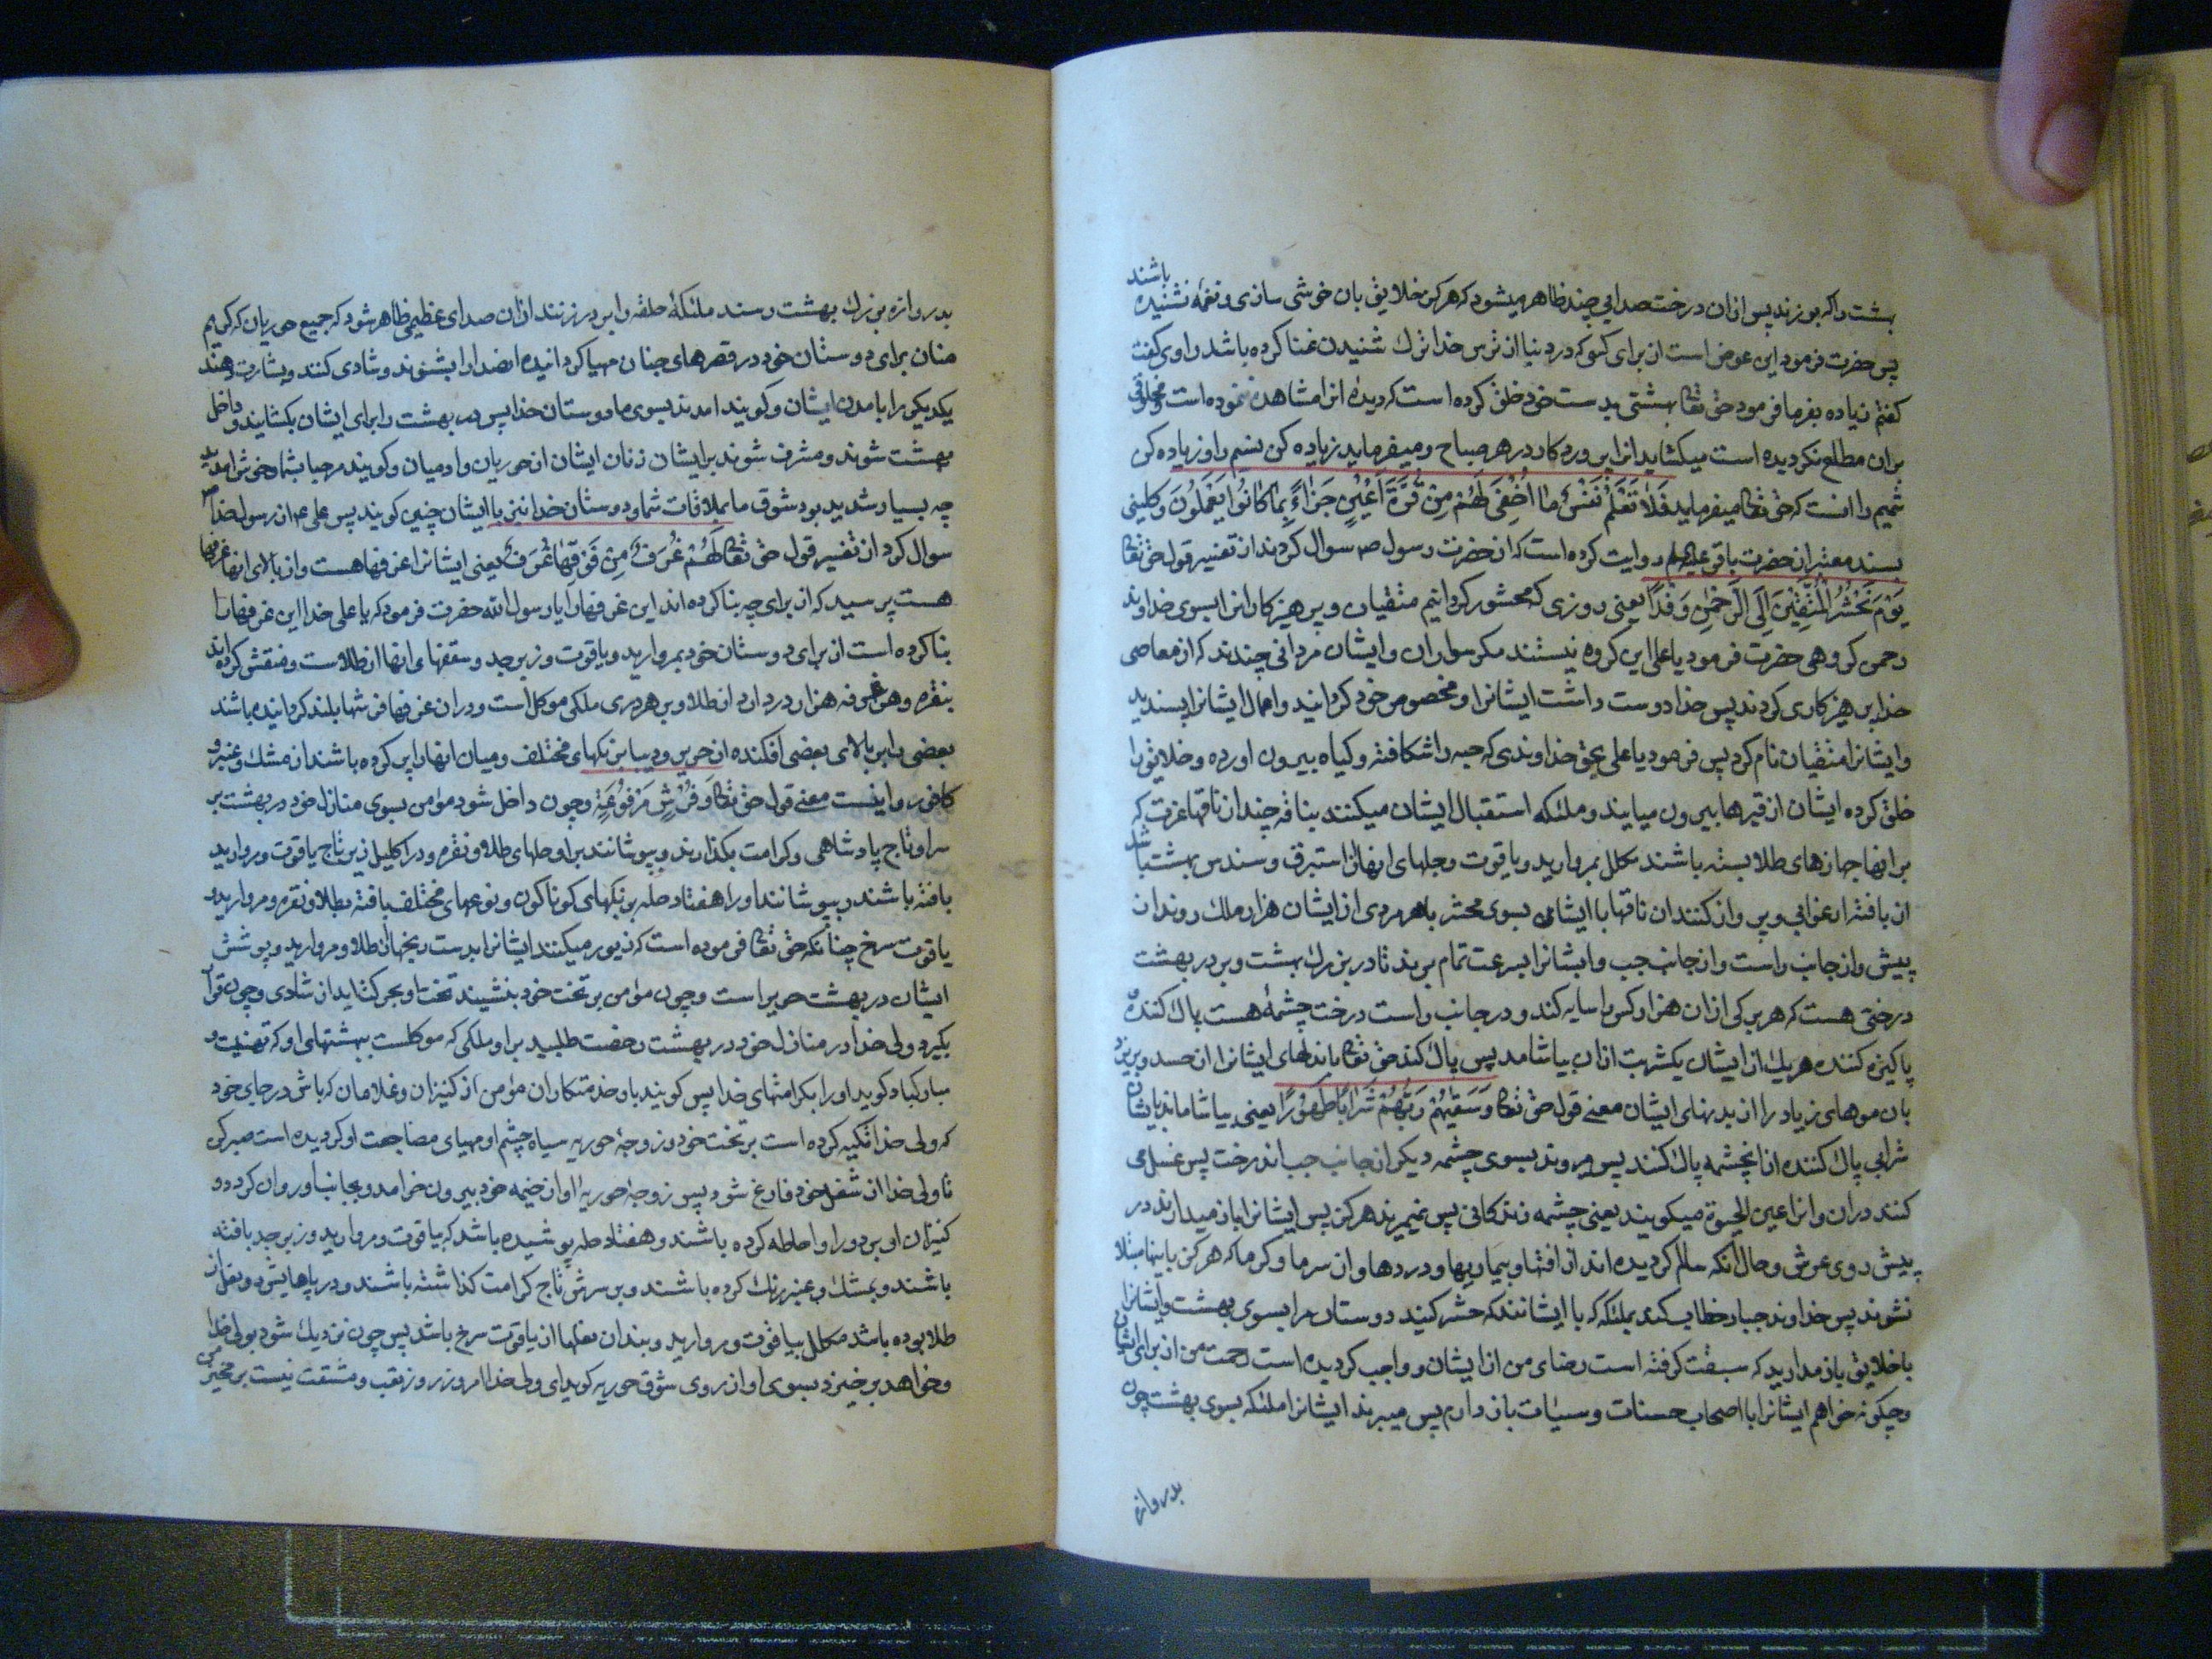 باشند
بهشت را که بوزند پس ازان درخت صدایی چند ظاهر میشود که هرکز خلایق بان خوشی سازی و نغمهٔ نشنیده
پس حضرت فرمود این عوض است از برای کسی که در دنیا از ترس خدا ترک شنیدن غنا کرده باشد راوی گفت
کفتم زیاده بفرما فرمود حق تعالی بهشتی بدست خود خلق کرده است که دیدهٔ انرا مشاهده ننموده است و مخلوقی
بران مطلع نکردیده است میکشاید انرا پروردکار در هر صباح و میفرماید زیاده کن نسیم را و زیاده کن
شمیم را انست که حق تعالی میفرماید فَلَا تَعْلَمُ نَفْسٌ مَا اُخْفِیَ لَهُمْ مِنْ قُرَّةِ اَعْیُنٍ جَزَاءً بِمَا کَانُوا یَعْمَلُونَ و کلینی
بسند معتبر از حضرت باقر علیه السلم روایت کرده است که از حضرت رسول ص سوال کردند از تفسیر قول حق تعالی
یَوْمَ نَحْشُرُ الْمُتَّقِینَ اِلَی الرَّحْمٰنِ وَفْدًا یعنی روزی که محشور کردانیم متقیان و پرهیزکارانرا بسوی خداوند
رحمن کروهی حضرت فرمود یا علی این کروه نیستند مکر سواران و ایشان مردانی چندند که از معاصی
خدا پرهیزکاری کردند پس خدا دوست داشت ایشانرا و مخصوص خود کردانید و اعمال ایشانرا پسندید
و ایشانرا متقیان نام کرد پس فرمود یا علی بحق خداوندی که حبه را شکافته و کیاه بیرون اورده و خلایق را
خلق کرده ایشان از قبرها بیرون میایند و ملئکه استقبال ایشان میکنند بناقهٔ چند از ناقهای عزت که
بر انها جهازهای طلا بسته باشند مکلل بمروارید و یاقوت و جلهای انها از استبرق و سندس بهشت باشد
از بافته ارغوانی و پرواز کنند ان ناقها با ایشان بسوی محشر با هر مردی از ایشان هزار ملک روند از
پیش و از جانب راست و از جانب چپ و ایشانرا بسرعت تمام برند تا در بزرک بهشت و بر در بهشت
درختی هست که هر برکی ازان هزار کس را سایه کند و در جانب راست درخت چشمهٔ هست پاک کننده و
پاکیزه کننده هریک از ایشان یکشربت ازان بیاشامد پس پاک کند حق تعالی بان دلهای ایشانرا از حسد و بریزد
بان موهای زیاد را از بدنهای ایشان معنی قول حق تعالی وَسَقٰیهُمْ رَبُّهُمْ شَرَابًا طَهُورًا یعنی بیاشاماند بایشان
شرابی پاک کننده از انچشمه پاک کنند پس میروند بسوی چشمه دیکر از جانب چپ اندرخت پس غسل می
کنند دران و انرا عین الحیوة میکویند یعنی چشمه زندکانی پس نمیرند هرکز پس ایشانرا باز میدارند در
پیش روی عرش و حال انکه سالم کردیده اند از افتها و بیماریها و دردها و از سرما و کرما که هرکز باینها مبتلا
نشوند پس خداوند جبار خطاب کند بملئکه که با ایشانند که حشر کنید دوستان مرا بسوی بهشت و ایشانرا
با خلایق باز مدارید که سبقت کرفته است رضای من از ایشان و واجب کردیده است رحمت من از برای ایشان
و چکونه خواهم ایشانرا با اصحاب حسنات و سیئات باز دارم پس میبرند ایشانرا ملئکه بسوی بهشت چون
بدروازه
بدروازه بزرک بهشت رسند ملئکهٔ حلقه را بر در زنند ازان صدای عظیمی ظاهر شود که جمیع حوریان که کریم
منان برای دوستان خود در قصرهای جنان مهیا کردانیده انصدا را بشنوند و شادی کنند و بشارت دهند
یکدیکر را بامدن ایشان و کویند امدند بسوی ما دوستان خدا پس در بهشت را برای ایشان بکشایند و داخل
بهشت شوند و مشرف شوند بر ایشان زنان ایشان از حوریان و ادمیان و کویند مرحبا بشما خوش امدید
چه بسیار شدید بود شوق ما بملاقات شما و دوستان خدا نیز با ایشان چنین کویند پس علی ع از رسول خدا ص
سوال کرد از تفسیر قول حق تعالی لَهُمْ غُرَفٌ مِنْ فَوْقِهَا غُرَفٌ یعنی ایشانرا غرفها هست و از بالای انها غرفها
هست پرسید که از برای چه بنا کرده اند این غرفهارا یا رسول الله حضرت فرمود که یا علی خدا این غرفهارا
بنا کرده است از برای دوستان خود بمروارید و یاقوت و زبرجد و سقفهای انها از طلاست و منقش کرده اند
بنقره و هر غرفه هزار در دارد از طلا و بر هر دری ملکی موکل است و دران غرفها فرشها بلند کردانیده باشند
بعضی را بر بالای بعضی افکنده از حریر و دیبا برنکهای مختلف و میان انها را پر کرده باشند از مشک و عنبر و
کافور و اینست معنی قول حق تعالی وَفُرُشٍ مَرْفُوعَةٍ و چون داخل شود مؤمن بسوی منازل خود در بهشت بر
سر او تاج پادشاهی و کرامت بکذارند و بپوشانند بر او حلهای طلا و نقره و در اکلیل زیر تاج یاقوت و مروارید
بافته باشند و بپوشانند او را هفتاد حله برنکهای کوناکون و نوعهای مختلف بافته بطلا و نقره و مروارید و
یاقوت سرخ چنانکه حق تعالی فرموده است که زیور میکنند ایشانرا بدست رنجها از طلا و مروارید و پوشش
ایشان در بهشت حریر است و چون مؤمن بر تخت خود بنشیند تخت او بحرکت اید از شادی و چون قرار
بکیرد ولی خدا در منازل خود در بهشت رخصت طلبد بر او ملکی که موکلست ببهشتهای او که تهنیت و
مبارکباد کوید او را بکرامتهای خدا پس کویند باو خدمتکاران مؤمن از کنیزان و غلامان که باش در جای خود
که ولی خدا تکیه کرده است بر تخت خود و زوجهٔ حوریه سیاه چشم او مهیای مضاجعت او کردیده است صبر کن
تا ولی خدا از شغل خود فارغ شود پس زوجهٔ حوریهٔ او از خیمه خود بیرون خرامد و بجانب او روان کردد و
کنیزان او بر دور او احاطه کرده باشند و هفتاد حله پوشیده باشد که بیاقوت و مروارید و زبرجد بافته
باشند و بمشک و عنبر رنک کرده باشند و بر سرش تاج کرامت کذاشته باشند و در پاهایش دو نعل از
طلا بوده باشد مکلل بیاقوت و مروارید و بندان نعلها از یاقوت سرخ باشد پس چون نزدیک شود بولی خدا
و خواهد برخیزد بسوی او از روی شوق حوریه کوید ای ولی خدا امروز روز تعب و مشقت نیست بر مخیز